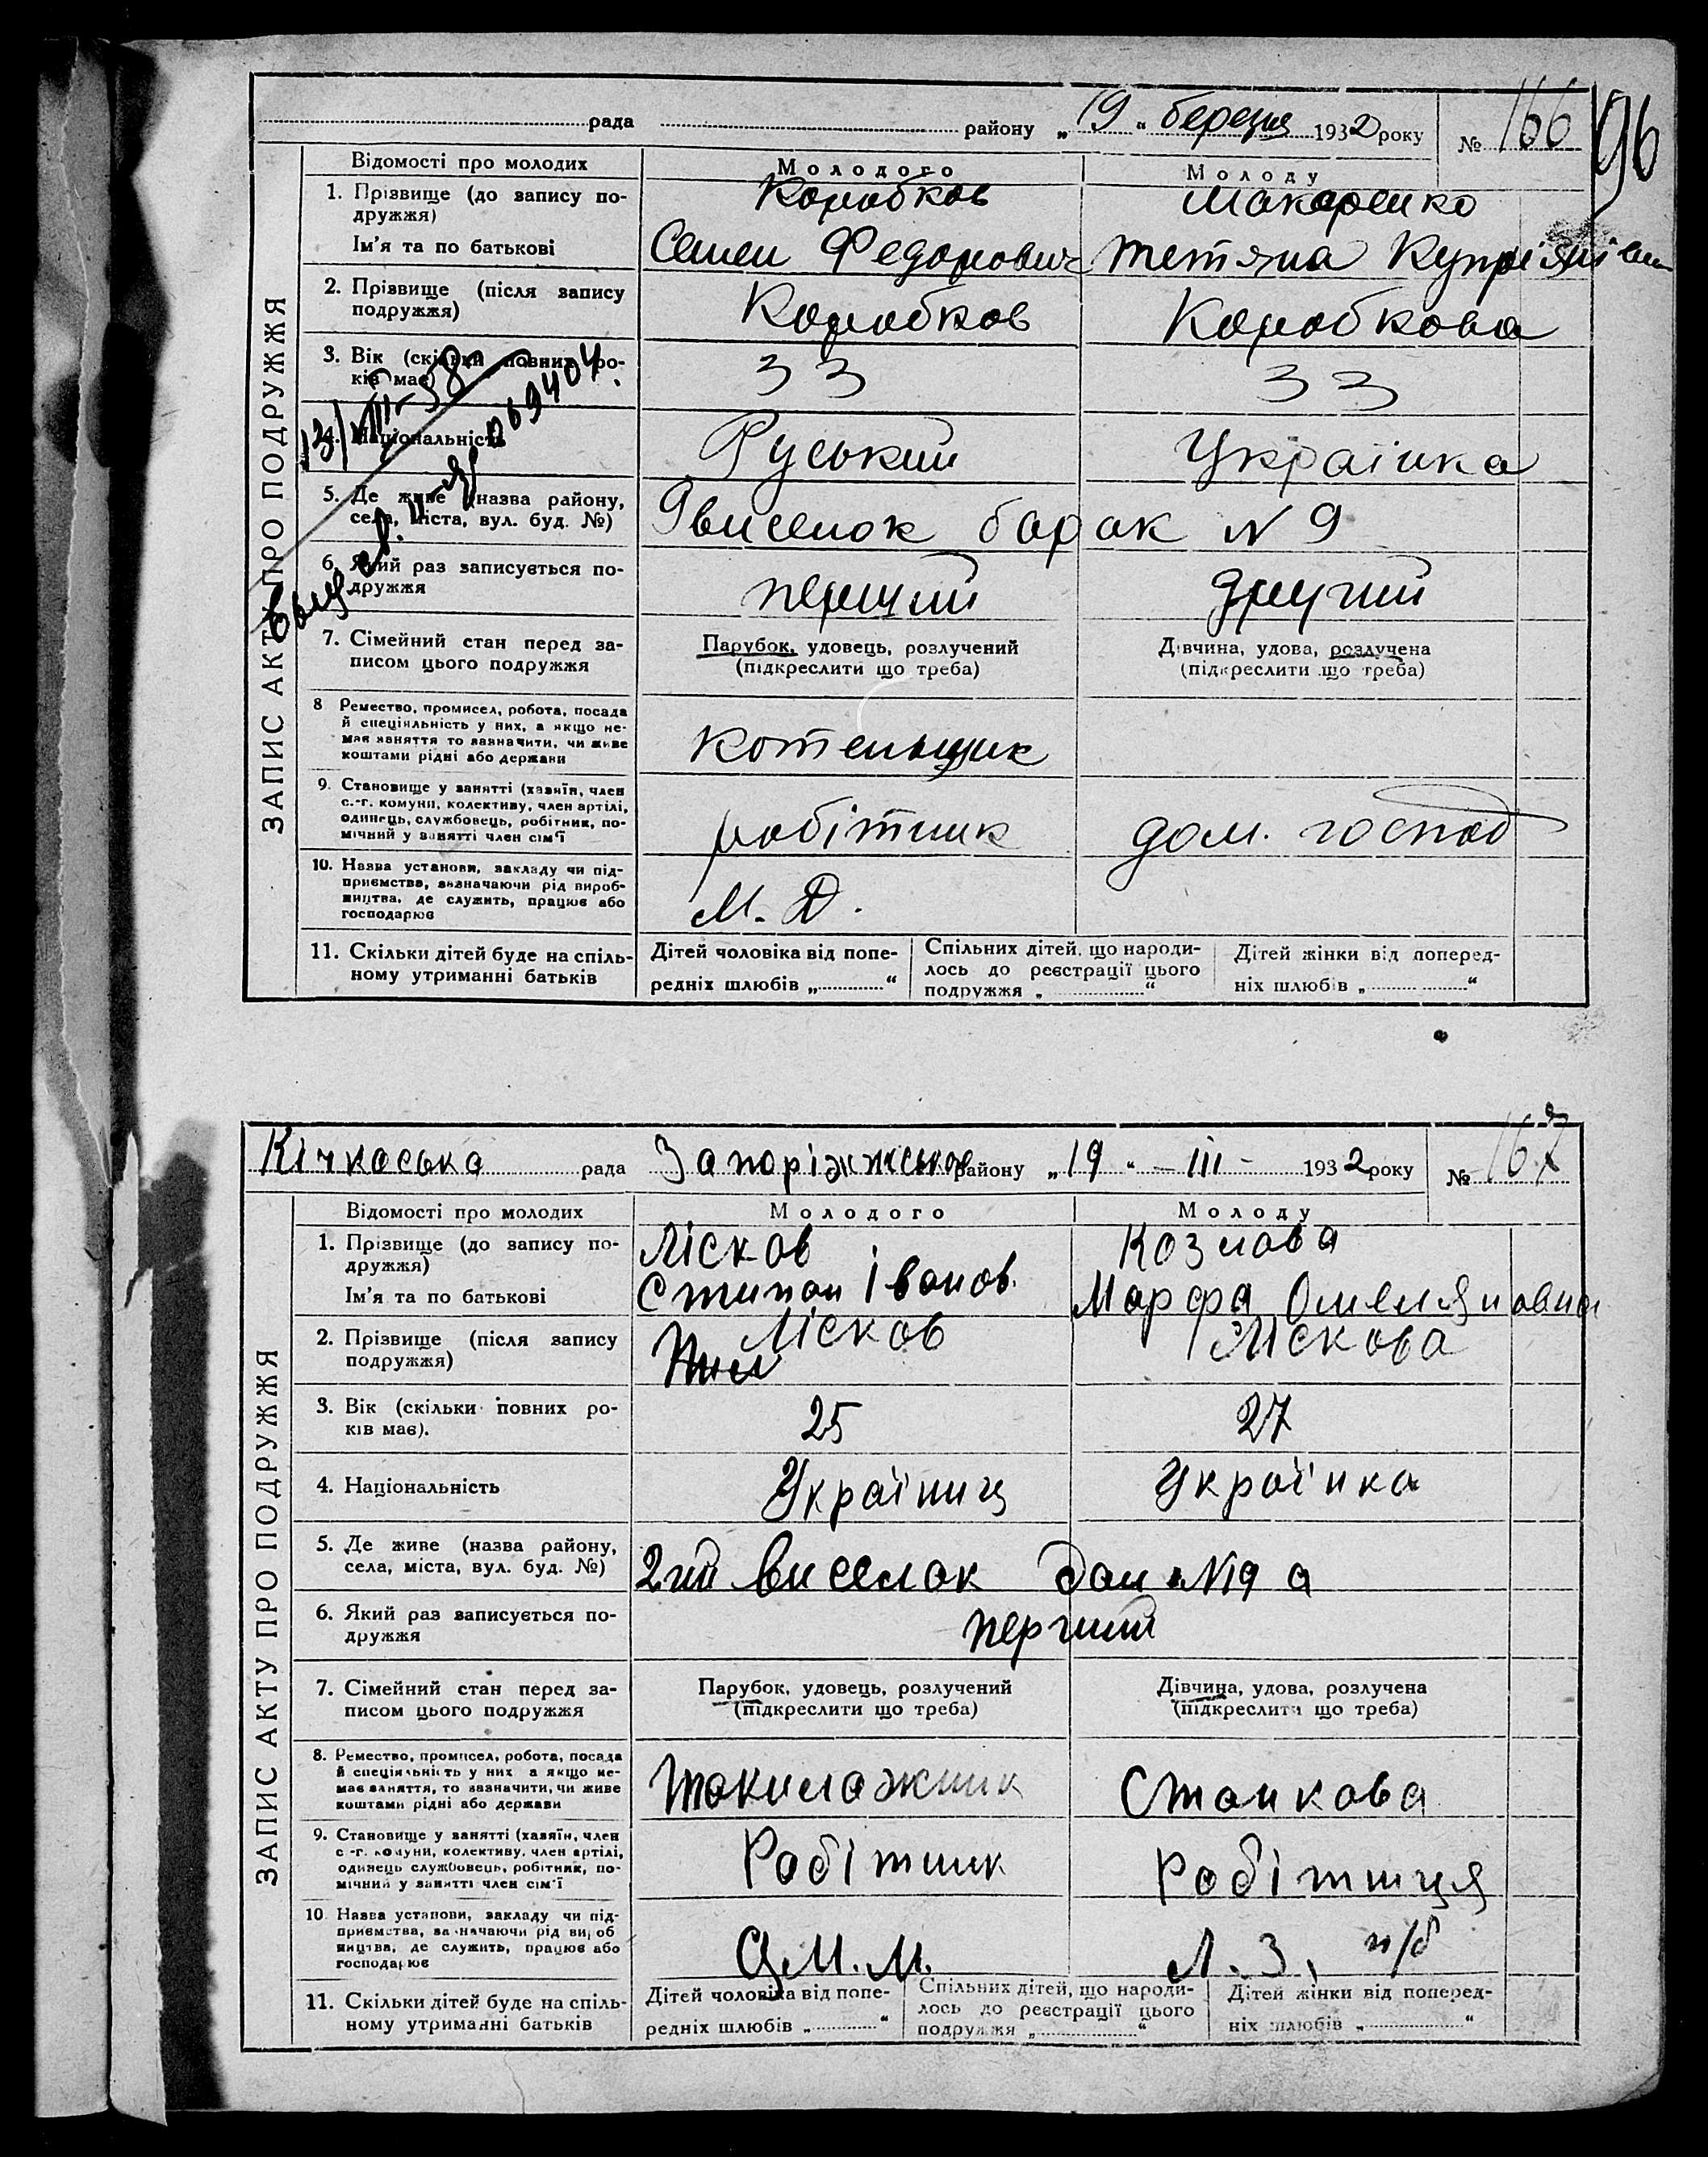 96
рада району „19“ березня 1932 року № 166
ЗАПИС АКТУ ПРО ПОДРУЖЖЯ
Відомості про молодих Молодого Молоду
1. Прізвище (до запису по- Коробков Макаренко
дружжя)
Ім'я та по батькові Семен Федорович Тетяна
2. Прізвище (після запису Коробков Коробкова
подружжя)
3. Вік (скільки повних ро- 33 33
ків має)
13/VIII-58 069404.
4. Національність Руський Українка
5. Де живе (назва району, 9 виселок барак N 9
села, міста, вул. буд. №)
6. Який раз записується по- перший другий
дружжя
7. Сімейний стан перед за- Парубок, удовець, розлучений Дівчина, удова, розлучена
писом цього подружжя (підкреслити що треба) (підкреслити що треба)
8 Ремество, промисел, робота, посада
й спеціяльність у них, а якщо не-
має заняття то зазначити, чи живе котельщик
коштами рідні або держави
9. Становище у занятті (хазяїн, член
с.-г. комуни, колективу, член артілі,
одинець, службовець, робітник, по- робітник дом. господ
мічний у занятті член сім'ї
10. Назва установи, закладу чи під-
приємства, зазначаючи рід вироб-
ництва, де служить, працює або М. Д.
господарює
11. Скільки дітей буде на спіль- Дітей чоловіка від попе- Спільних дітей, що народи- Дітей жінки від поперед-
ному утриманні батьків редніх шлюбів „ “ лось до реєстрації цього ніх шлюбів „ “
подружжя „ “
Кічкаська рада Запоріжжського району „19“ - III - 1932 року № 167
ЗАПИС АКТУ ПРО ПОДРУЖЖЯ
Відомості про молодих Молодого Молоду
1. Прізвище (до запису по- Лісков Козлова
дружжя)
Ім'я та по батькові Степан Іванов. Марфа Омеляновна
2. Прізвище (після запису ЛісковЛіскова
подружжя)
3. Вік (скільки повних ро- 25 27
ків має).
4. Національність Україниц Українка
5. Де живе (назва району, 2гий виселок дом N19 а
села, міста, вул. буд. №)
6. Який раз записується по- перший
дружжя
7. Сімейний стан перед за- Парубок, удовець, розлучений Дівчина, удова, розлучена
писом цього подружжя (підкреслити що треба) (підкреслити що треба)
8. Ремество, промисел, робота, посада
й спеціяльність у них а якщо не-
має заняття, то зазначити, чи живе такилажник Станкова
коштами рідні або держави
9. Становище у занятті (хазяїн, член
с-г. комуни, колективу, член артілі, Робітник Робітниця
одинець службовець, робітник, по-
мічний у занятті член сім'ї
10 Назва установи, закладу чи під-
приємства, зазначаючи рід вироб
ництва, де служить, працює або Ц.М.М. Л. З. п/б
господарює
11. Скільки дітей буде на спіль- Дітей чоловіка від попе- Спільних дітей, що народи- Дітей жінки від поперед-
ному утриманні батьків редніх шлюбів „ “ лось до реєстрації цього ніх шлюбів „ “
подружжя „ “